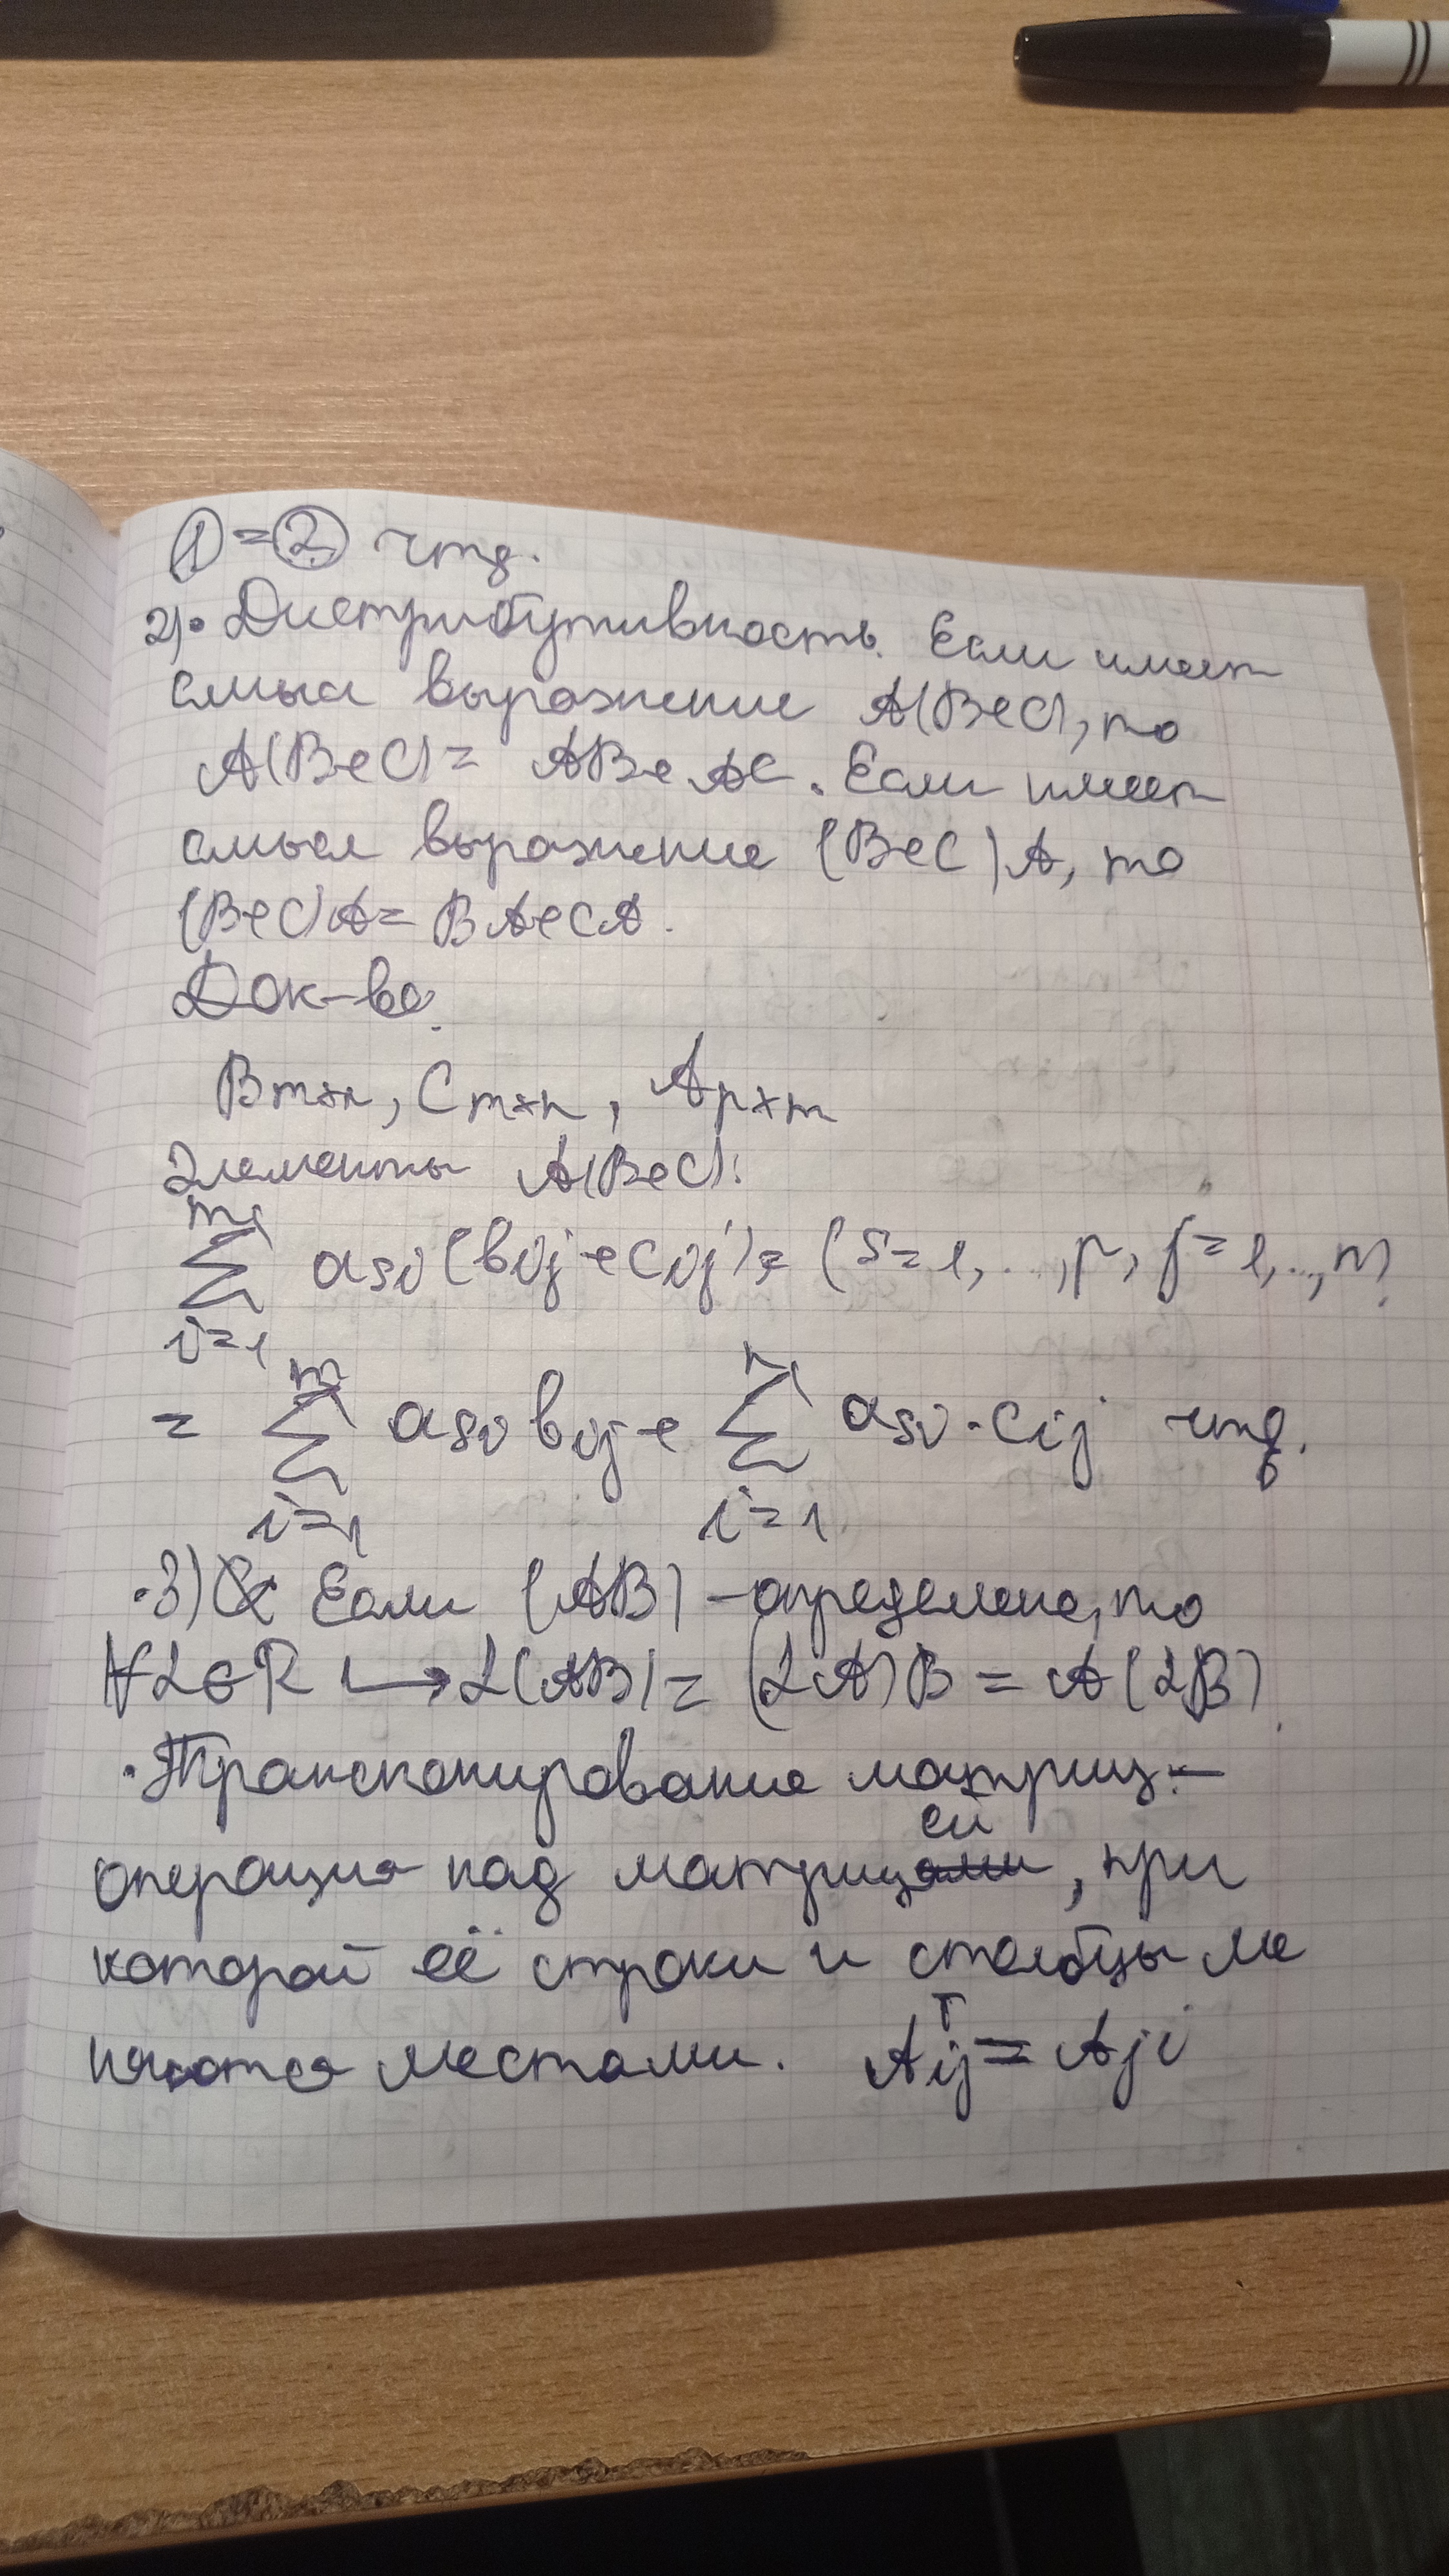 ① = ② чтд.
2)• Дистрибутивность. Если имеет
смысл выражение A(B+C), то
A(B+C) = AB + AC. Если имеет
смысл выражение (B+C)A, то
(B+C)A = BA + CA.
Док-во.
Bm×n, Cm×n, Ap×m
Элементы A(B+C):
∑_{i=1}^{m} a_si (b_ij + c_ij) = (s=1,...,p, j=1,..,n)
= ∑_{i=1}^{m} a_si b_ij + ∑_{i=1}^{n} a_si · c_ij чтд.
•3) Если (AB) – определено, то
∀α∈R ↦ α(AB) = (αA)B = A(αB)
• Транспонирование матриц –
операция над матрицей, при
которой её строки и столбцы ме
няются местами. A^T_ij = A_ji